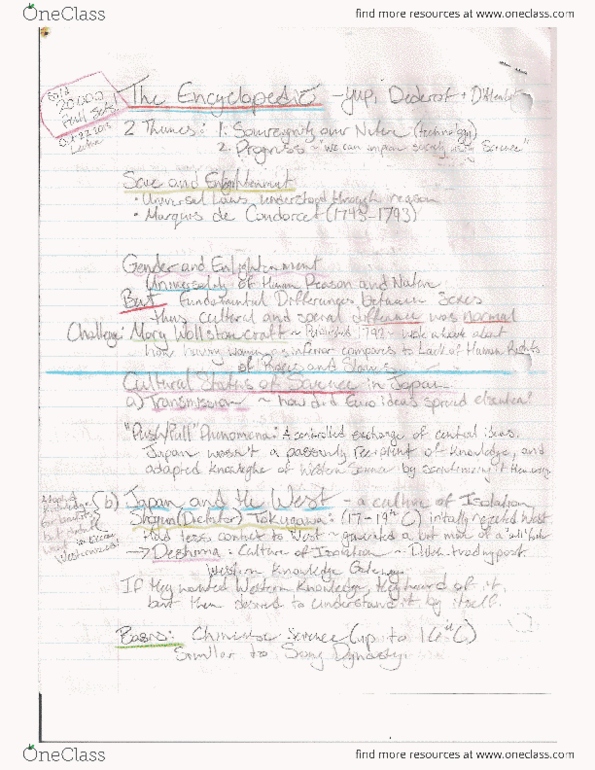 OneClass
find more resources at www.oneclass.com
Sold
20,000
Full Sets!
Oct 22 2013
Lecture
The Encyclopedie - Diderot +
2 Themes: 1. Sovereignity over Nature (technology)
2. Progress ~ "we can improve society with Science"
and Enlightenment
• Universal Laws, understood through reason
• Marquis de Condorcet (1743-1793)
Gender and Enlightenment
Universality of Human Reason and Nature
But: Fundamental Differences between Sexes
thus cultural and social difference was normal
Challenge: Mary Wollstonecraft ~ Published 1792 - wrote about
how having women as inferior compares to Lack of Human Rights
of and Slaves
Cultural Status of Science in Japan
a) Transmission ~ how did Euro ideas spread elsewhere?
"Push/Pull" Phenomena: A controlled exchange of central ideas.
Japan wasn't a passively recipient of knowledge, and
adapted knowledge of Western Science by scrutinizing it
Adopted
Knowledge
for benefits
but didn't
want to become
Westernized!
(b) Japan and the West - a culture of Isolation
Shogun (Dictator) Tokugawa: (17-19th C) initially rejected West
Had less contact to West ~ a but more of a
→ Deshima: Culture of Isolation ~ Dutch trading post
Western Knowledge Gateway
If they wanted Western Knowledge, they heard of it,
but then desired to understand it by itself.
Basis: Chinese Science (up to 16th C)
Similar to Song Dynasty
OneClass
find more resources at www.oneclass.com